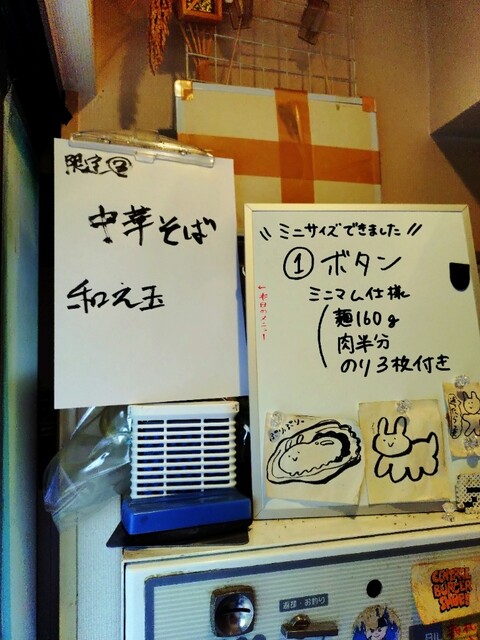 限定②
中華そば
和え玉
\\ ミニサイズできました //
① ボタン
ミニマム仕様
麺160g
肉半分
のり3枚付き
←本日のメニュー